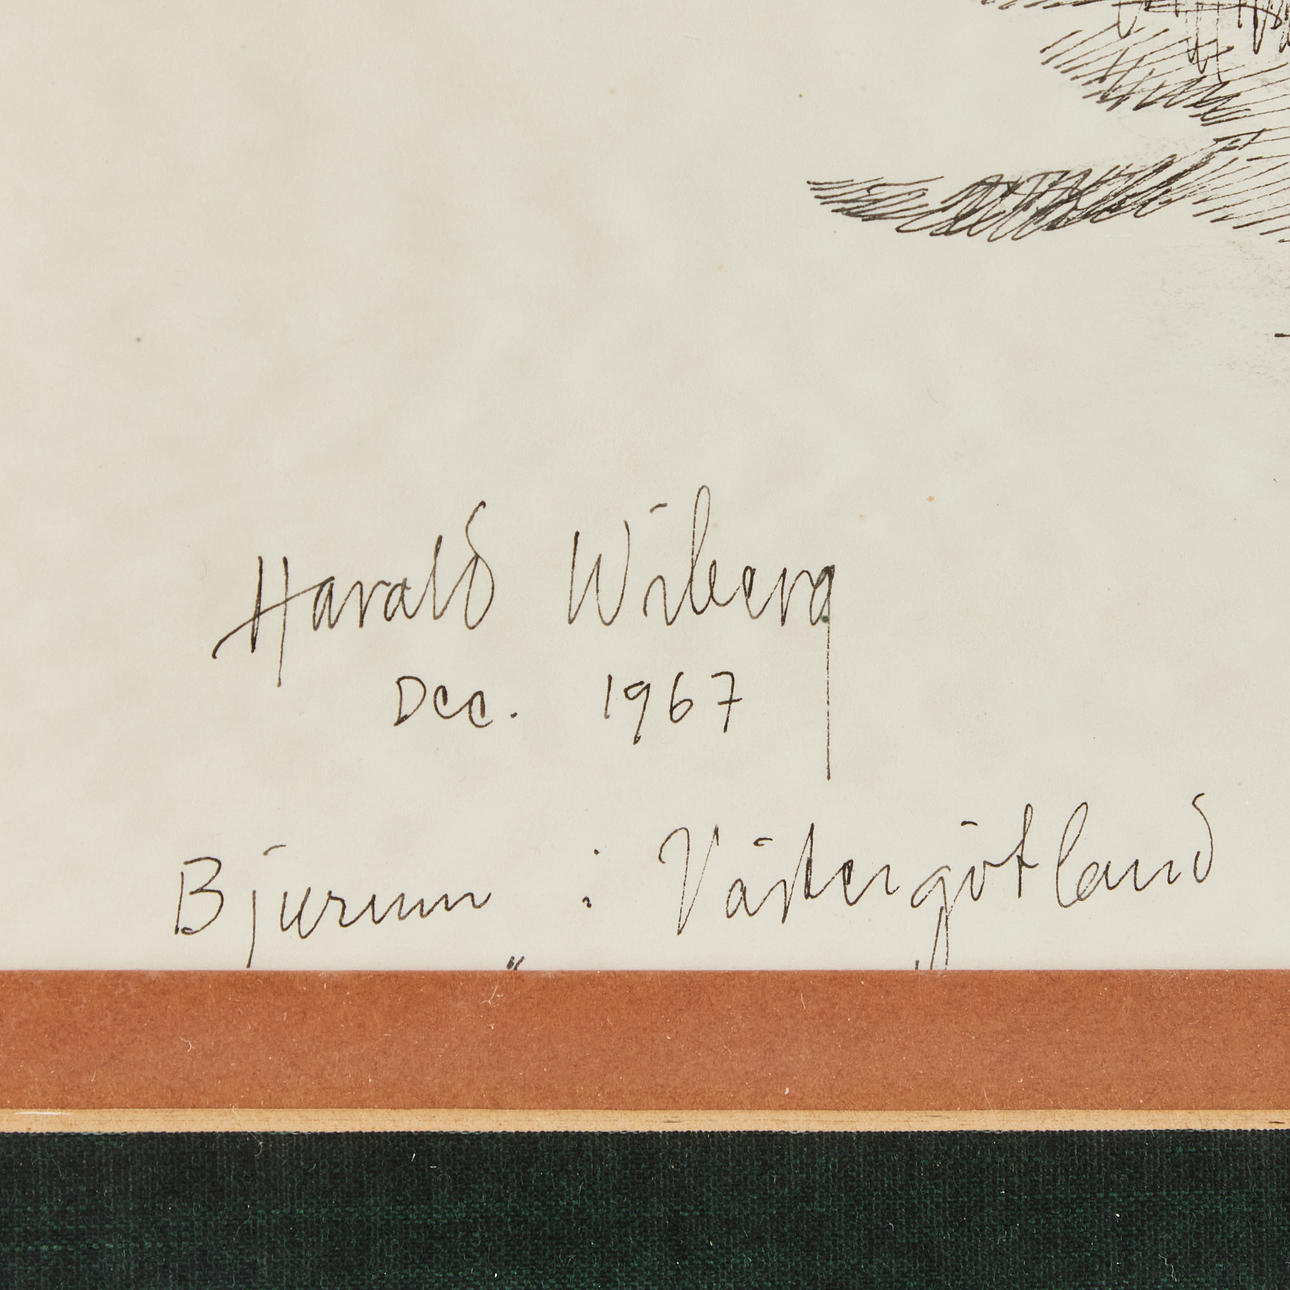 Harald Wiberg
Dec. 1967
Bjurum i Västergötland